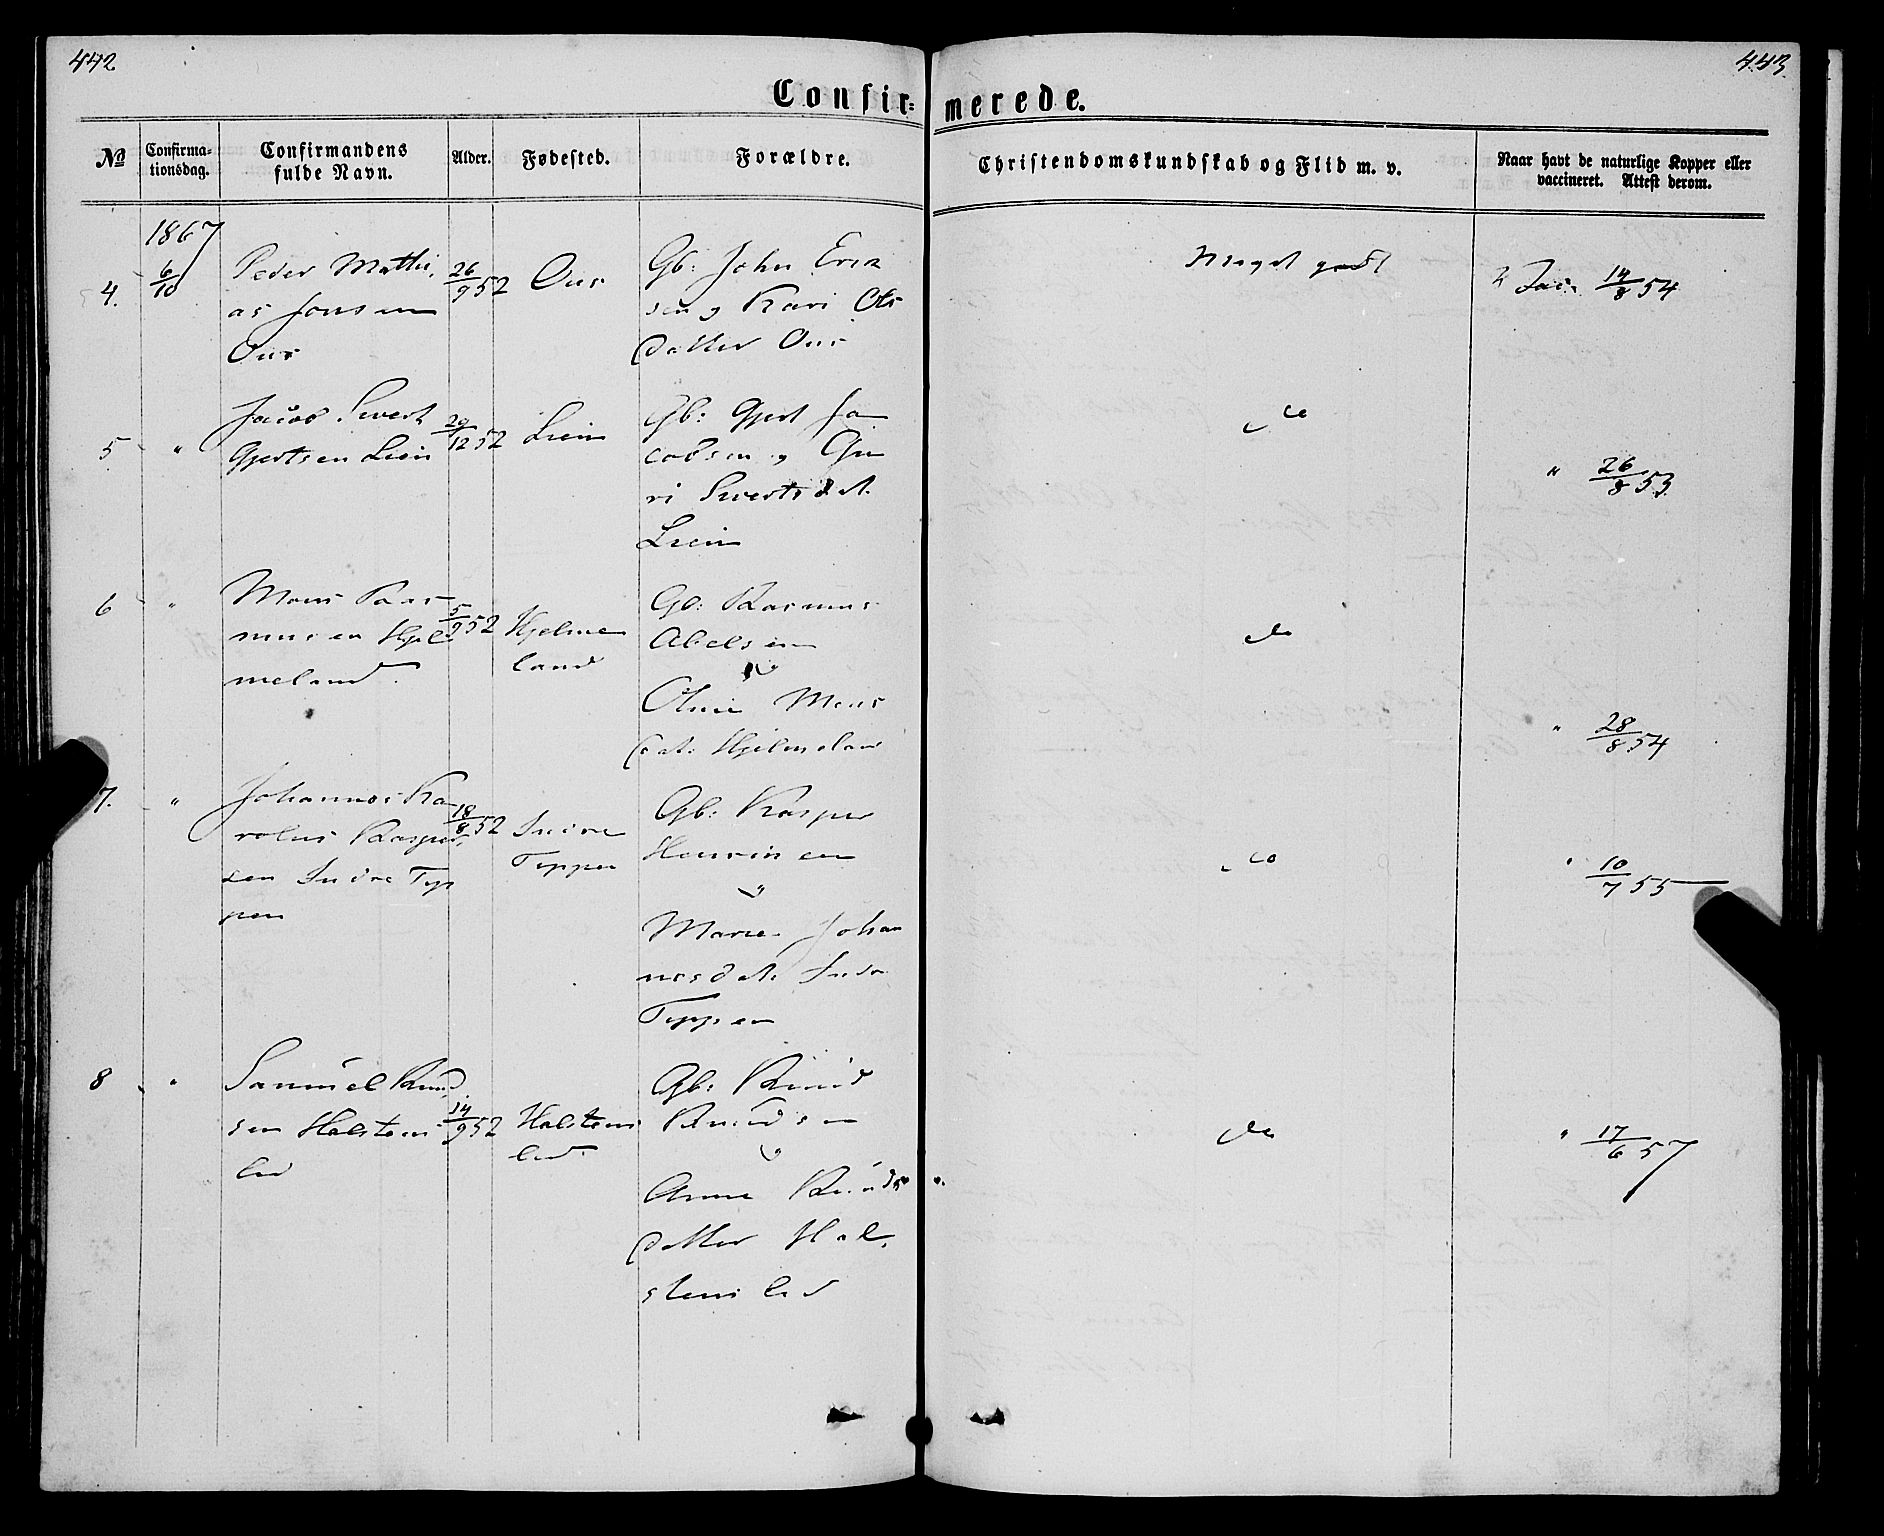 442
443.
Confir=
merede.
No
Confirma-
tionsdag.
Confirmandens
fulde Navn.
Alder.
Fødested.
Forældre.
Christendomskundskab og Flid m. v.
Naar havt de naturlige Kopper eller
vaccineret. Attest derom.
1867
4.
6/10
Peder Mathi
as Jonsen
Ous
26/9 52
Ous
Gb: John Erik
sen og Kari Ols
datter Ous
Meget godt
14/8 54
5
"
Jacob Sivert
Gjertsen Lien
29/12 52
Lien
Gb: Gjert Ja
cobsen og Gu
ri Sivertsdat.
Lien
do
" 26/8 53
6
"
Mons Ras
musen Hjel
meland.
5/9 52
Hjelme
land
Gb: Rasmus
Abelsen
og
Oline Mons
dat: Hjelmelan
do
" 28/8 54
7.
"
Johannes Ka
rolus Kasper
sen Indre Tep
pen
18/8 52
Indre
Teppen
Gb: Kasper
og
Marie Johan
nesdat. Indre
Teppen
do
" 10/7 55
8
"
Samuel Knud
sen Halstens
lid
14/9 52
Halstens
lid.
Gb: Knud
Knudsen
og
Anne Knuds
datter Hal
stenslid
do
" 17/6 57